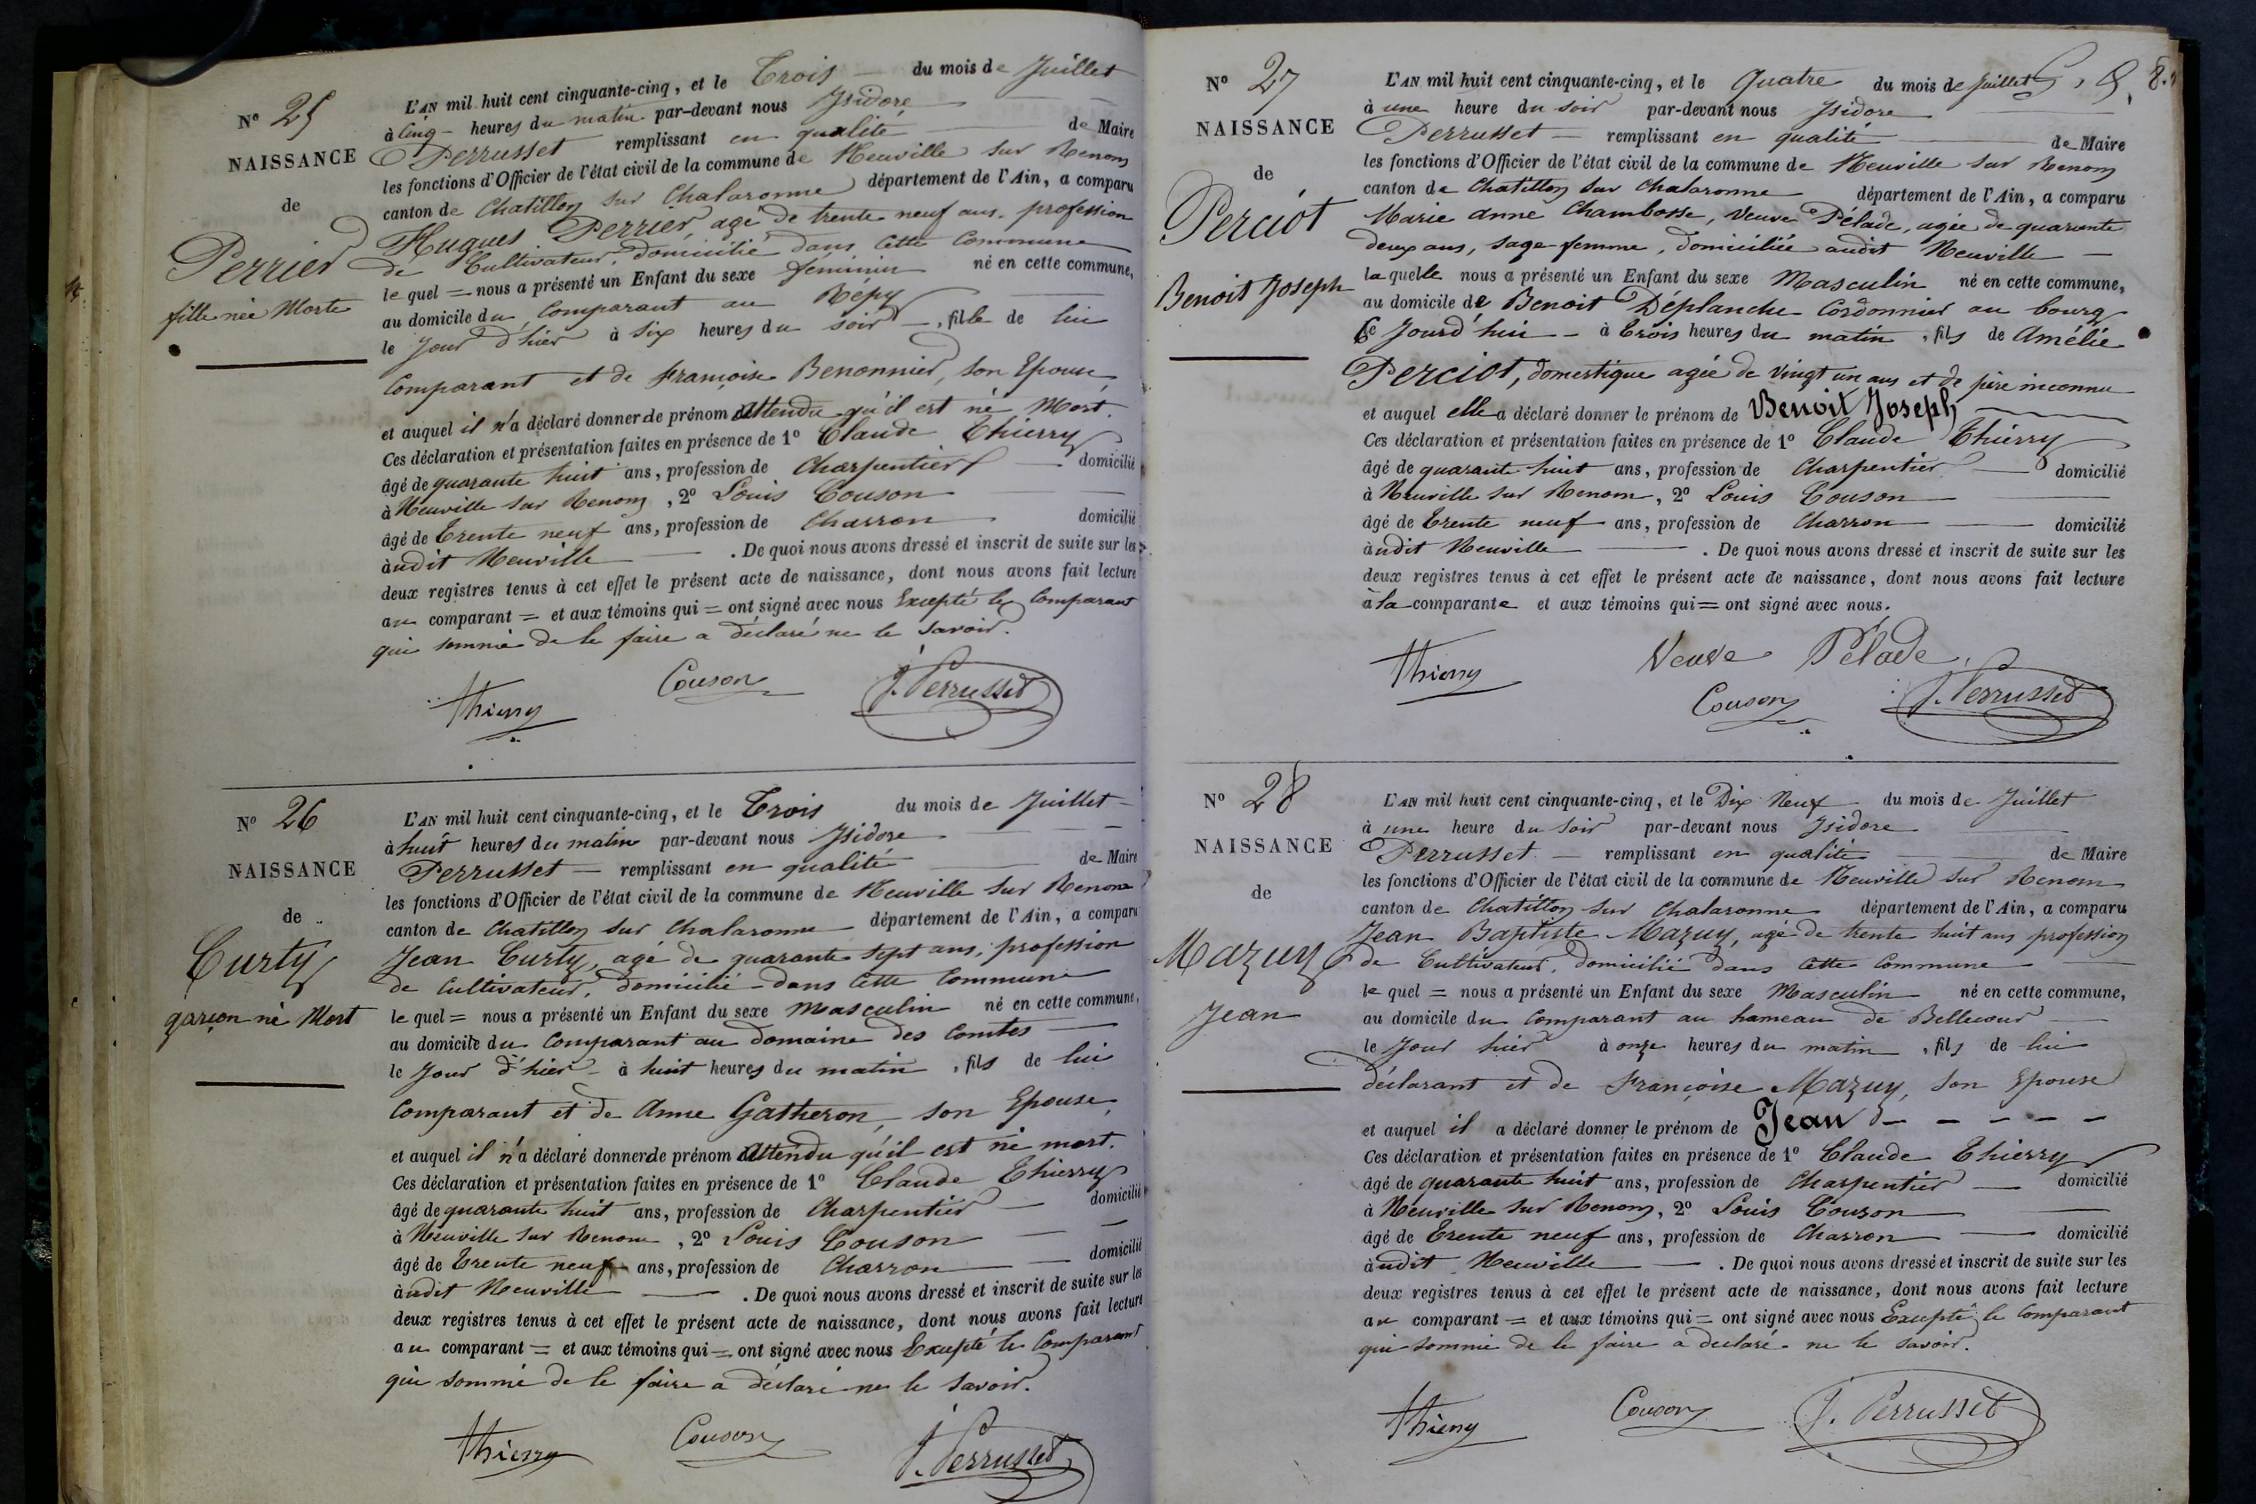 N° 25
NAISSANCE
de
Perrier
fille née Morte
L'AN mil huit cent cinquante-cinq, et le Trois du mois de Juillet
à Cinq heures du matin par-devant nous Isidore
Perrusset remplissant en qualité de Maire
les fonctions d'Officier de l'état civil de la commune de Neuville sur Renom
canton de Chatillon sur Chalaronne département de l'Ain, a comparu
Hugues Perrier, agé de trente neuf ans, profession
de Cultivateur, domicilié dans cette Commune
le quel = nous a présenté un Enfant du sexe féminin né en cette commune,
au domicile du Comparant au Répy
le jour d'hier à six heures du soir, fille de lui
Comparant et de Françoise Benonnier, son Epouse,
et auquel il n'a déclaré donner de prénom Attendu qu'il est né Mort.
Ces déclaration et présentation faites en présence de 1° Claude Thierry
âgé de quarante huit ans, profession de Charpentier domicilié
à Neuville sur Renom, 2° Louis Couson
âgé de Trente neuf ans, profession de Charron domicilié
àudit Neuville. De quoi nous avons dressé et inscrit de suite sur les
deux registres tenus à cet effet le présent acte de naissance, dont nous avons fait lecture
au comparant = et aux témoins qui = ont signé avec nous Excepté le Comparant
qui sommé de le faire a déclaré ne le savoir.
Thierry Couson J. Perrusset
N° 26
NAISSANCE
de
Curty
garçon né Mort
L'AN mil huit cent cinquante-cinq, et le Trois du mois de Juillet
à huit heures du matin par-devant nous Isidore
Perrusset remplissant en qualité de Maire
les fonctions d'Officier de l'état civil de la commune de Neuville sur Renom
canton de Chatillon sur Chalaronne département de l'Ain, a comparu
Jean Curty, agé de quarante sept ans, profession
de Cultivateur, domicilié dans cette Commune
le quel = nous a présenté un Enfant du sexe Masculin né en cette commune,
au domicile du Comparant au domaine des Comtes
le jour d'hier à huit heures du matin, fils de lui
Comparant et de Anne Gatheron, son Epouse,
et auquel il n'a déclaré donner de prénom Attendu qu'il est né mort.
Ces déclaration et présentation faites en présence de 1° Claude Thierry
âgé de quarante huit ans, profession de Charpentier domicilié
à Neuville sur Renom, 2° Louis Couson
âgé de Trente neuf ans, profession de Charron domicilié
àudit Neuville. De quoi nous avons dressé et inscrit de suite sur les
deux registres tenus à cet effet le présent acte de naissance, dont nous avons fait lecture
au comparant = et aux témoins qui = ont signé avec nous Excepté le Comparant
qui sommé de le faire a déclaré ne le savoir.
Thierry Couson J. Perrusset
N° 27
NAISSANCE
de
Perciot
Benoit Joseph
L'AN mil huit cent cinquante-cinq, et le Quatre du mois de Juillet
à une heure du soir par-devant nous Isidore
Perrusset remplissant en qualité de Maire
les fonctions d'Officier de l'état civil de la commune de Neuville sur Renom
canton de Chatillon sur Chalaronne département de l'Ain, a comparu
Marie Anne Chambosse, Veuve Pélade, agée de quarante
deux ans, sage-femme, domiciliée audit Neuville
la quelle nous a présenté un Enfant du sexe Masculin né en cette commune,
au domicile de Benoit Déplanche Cordonnier au bourg
le Jourd'hui à trois heures du matin, fils de Amélie
Perciot, domestique agée de vingt un ans et de père inconnu
et auquel elle a déclaré donner le prénom de Benoit Joseph
Ces déclaration et présentation faites en présence de 1° Claude Thierry
âgé de quarante huit ans, profession de Charpentier domicilié
à Neuville sur Renom, 2° Louis Couson
âgé de Trente neuf ans, profession de Charron domicilié
àudit Neuville. De quoi nous avons dressé et inscrit de suite sur les
deux registres tenus à cet effet le présent acte de naissance, dont nous avons fait lecture
à la comparante et aux témoins qui = ont signé avec nous.
Thierry Veuve Pélade
Couson J. Perrusset
N° 28
NAISSANCE
de
Mazuy
Jean
L'AN mil huit cent cinquante-cinq, et le Dix Neuf du mois de Juillet
à une heure du soir par-devant nous Isidore
Perrusset remplissant en qualité de Maire
les fonctions d'Officier de l'état civil de la commune de Neuville sur Renom
canton de Chatillon sur Chalaronne département de l'Ain, a comparu
Jean Baptiste Mazuy, agé de trente huit ans profession
de Cultivateur, domicilié dans cette Commune
le quel = nous a présenté un Enfant du sexe Masculin né en cette commune,
au domicile du Comparant au hameau de Bellecour
le Jour hier à onze heures du matin, fils de lui
déclarant et de Françoise Mazuy, son Epouse
et auquel il a déclaré donner le prénom de Jean
Ces déclaration et présentation faites en présence de 1° Claude Thierry
âgé de quarante huit ans, profession de Charpentier domicilié
à Neuville sur Renom, 2° Louis Couson
âgé de Trente neuf ans, profession de Charron domicilié
àudit Neuville. De quoi nous avons dressé et inscrit de suite sur les
deux registres tenus à cet effet le présent acte de naissance, dont nous avons fait lecture
au comparant = et aux témoins qui = ont signé avec nous Excepté le Comparant
qui sommé de le faire a déclaré ne le savoir.
Thierry Couson J. Perrusset